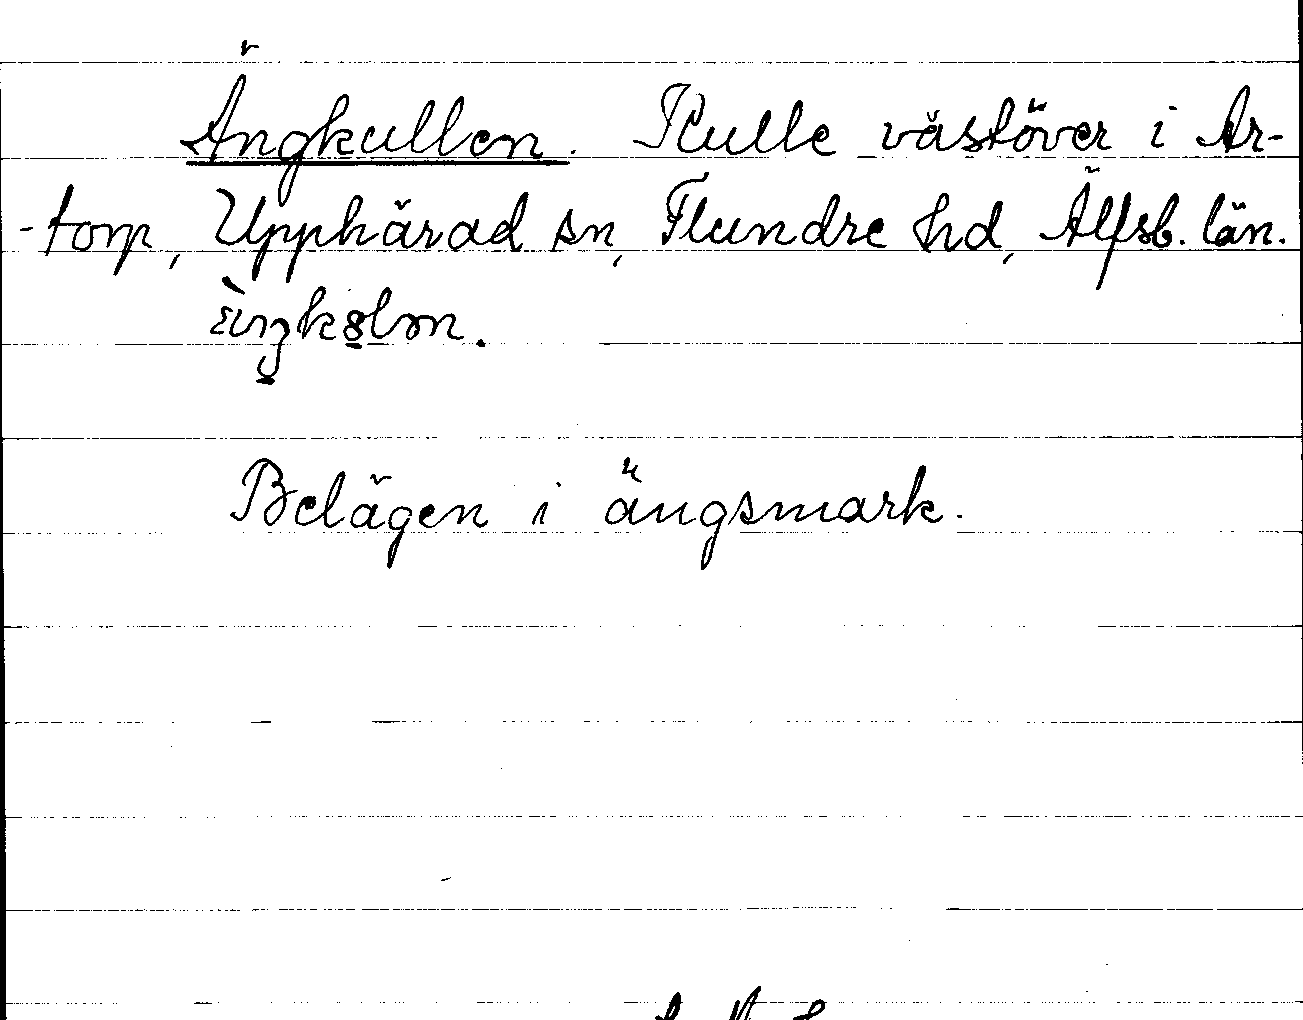 Ängkullen. Kulle västöver i Ar-
-torp, Upphärad sn, Flundre hd, Älfsb. län.
Belägen i ängsmark.